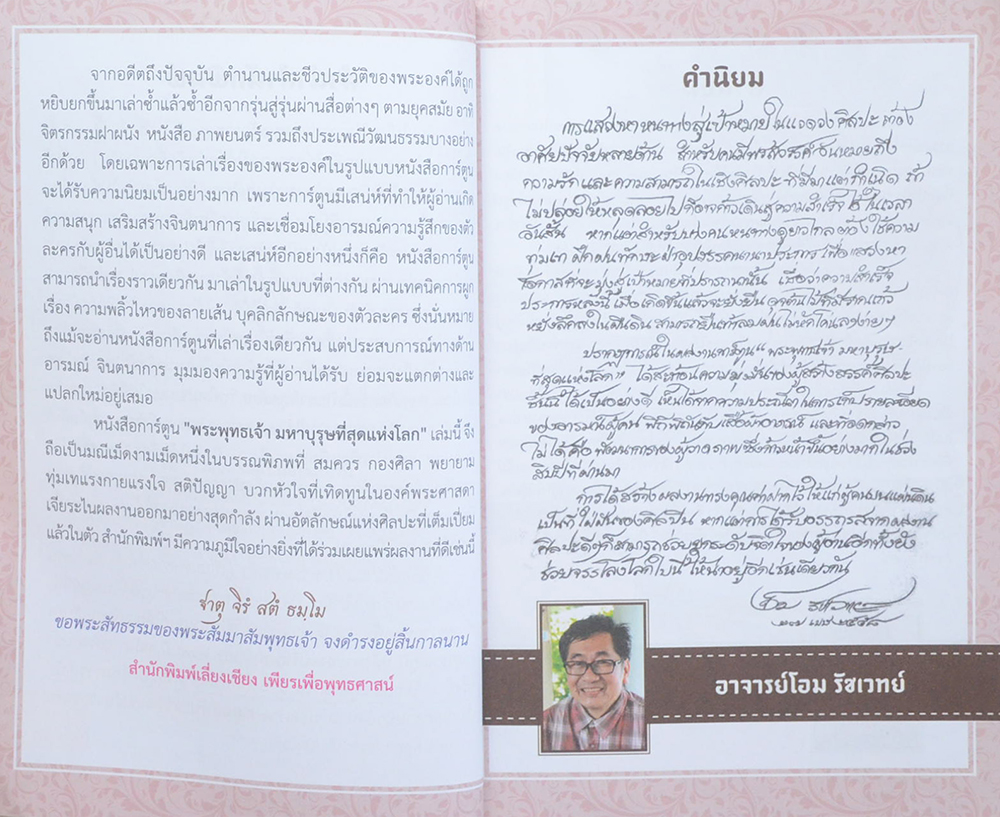 จากอดีตถึงปัจจุบัน ตำนานและชีวประวัติของพระองค์ได้ถูก
หยิบยกขึ้นมาเล่าซ้ำแล้วซ้ำอีกจากรุ่นสู่รุ่นผ่านสื่อต่างๆ ตามยุคสมัย อาทิ
จิตรกรรมฝาผนัง หนังสือ ภาพยนตร์ รวมถึงประเพณีวัฒนธรรมบางอย่าง
อีกด้วย โดยเฉพาะการเล่าเรื่องของพระองค์ในรูปแบบหนังสือการ์ตูน
จะได้รับความนิยมเป็นอย่างมาก เพราะการ์ตูนมีเสน่ห์ที่ทำให้ผู้อ่านเกิด
ความสนุก เสริมสร้างจินตนาการ และเชื่อมโยงอารมณ์ความรู้สึกของตัว
ละครกับผู้อื่นได้เป็นอย่างดี และเสน่ห์อีกอย่างหนึ่งก็คือ หนังสือการ์ตูน
สามารถนำเรื่องราวเดียวกัน มาเล่าในรูปแบบที่ต่างกัน ผ่านเทคนิคการผูก
เรื่อง ความพลิ้วไหวของลายเส้น บุคลิกลักษณะของตัวละคร ซึ่งนั่นหมาย
ถึงแม้จะอ่านหนังสือการ์ตูนที่เล่าเรื่องเดียวกัน แต่ประสบการณ์ทางด้าน
อารมณ์ จินตนาการ มุมมองความรู้ที่ผู้อ่านได้รับ ย่อมจะแตกต่างและ
แปลกใหม่อยู่เสมอ
หนังสือการ์ตูน "พระพุทธเจ้า มหาบุรุษที่สุดแห่งโลก" เล่มนี้ จึง
ถือเป็นมณีเม็ดงามเม็ดหนึ่งในบรรณพิภพที่ สมควร กองศิลา พยายาม
ทุ่มเทแรงกายแรงใจ สติปัญญา บวกหัวใจที่เทิดทูนในองค์พระศาสดา
เจียระไนผลงานออกมาอย่างสุดกำลัง ผ่านอัตลักษณ์แห่งศิลปะที่เต็มเปี่ยม
แล้วในตัว สำนักพิมพ์ฯ มีความภูมิใจอย่างยิ่งที่ได้ร่วมเผยแพร่ผลงานที่ดีเช่นนี้
ฐาตุ จิรํ สตํ ธมฺโม
ขอพระสัทธรรมของพระสัมมาสัมพุทธเจ้า จงดำรงอยู่สิ้นกาลนาน
สำนักพิมพ์เลี่ยงเชียง เพียรเพื่อพุทธศาสน์
คำนิยม
การแสวงหาหนทางสู่เป้าหมายในแวดวงศิลปะ ต้อง
อาศัยปัจจัยหลายด้าน สำหรับคนมีพรสวรรค์ อันหมายถึง
ความรัก และความสามารถในเชิงศิลปะ ที่มีมาแต่กำเนิด ถ้า
ไม่ปล่อยให้หลุดลอยไป ก็อาจก้าวเดินสู่ความสำเร็จได้ในเวลา
อันสั้น หากแต่สำหรับบางคนหนทางดูยาวไกล ต้องใช้ความ
ทุ่มเท ฝึกฝน ฟันฝ่าอุปสรรคนานาประการ เพื่อแสวงหา
โอกาสที่จะมุ่งสู่เป้าหมายที่ปรารถนานั้น เชื่อว่าความสำเร็จ
ประการหลังนี้ เมื่อเกิดขึ้นแล้วจะยั่งยืน ดุจต้นไม้ที่มีรากแก้ว
หยั่งลึกลงในผืนดิน สามารถยืนต้นทนฝนไม่หักโค่นลงง่ายๆ
ปรากฏการณ์ในผลงานการ์ตูน "พระพุทธเจ้า มหาบุรุษ
ที่สุดแห่งโลก" ได้สะท้อนความมุ่งมั่นของผู้สร้างสรรค์ศิลปะ
ชิ้นนี้ได้เป็นอย่างดี เห็นได้จากความประณีตในการเก็บรายละเอียด
ของอารมณ์ผู้คน พิถีพิถันกับเสื้อผ้าอาภรณ์ และที่อดกล่าว
ไม่ได้คือ พัฒนาการของผู้วาดภาพซึ่งก้าวหน้าขึ้นอย่างมากในช่วง
สิบปีที่ผ่านมา
การได้สร้างผลงานทรงคุณค่าฝากไว้ให้แก่ผู้คนบนแผ่นดิน
เป็นที่ใฝ่ฝันของศิลปิน หากแต่การได้รับอรรถรสจากผลงาน
ศิลปะดีๆ ก็สามารถช่วยยกระดับจิตใจของผู้อ่าน อีกทั้งยัง
ช่วยจรรโลงโลกใบนี้ ให้น่าอยู่อีกเช่นเดียวกัน
อาจารย์โอม รัชเวทย์